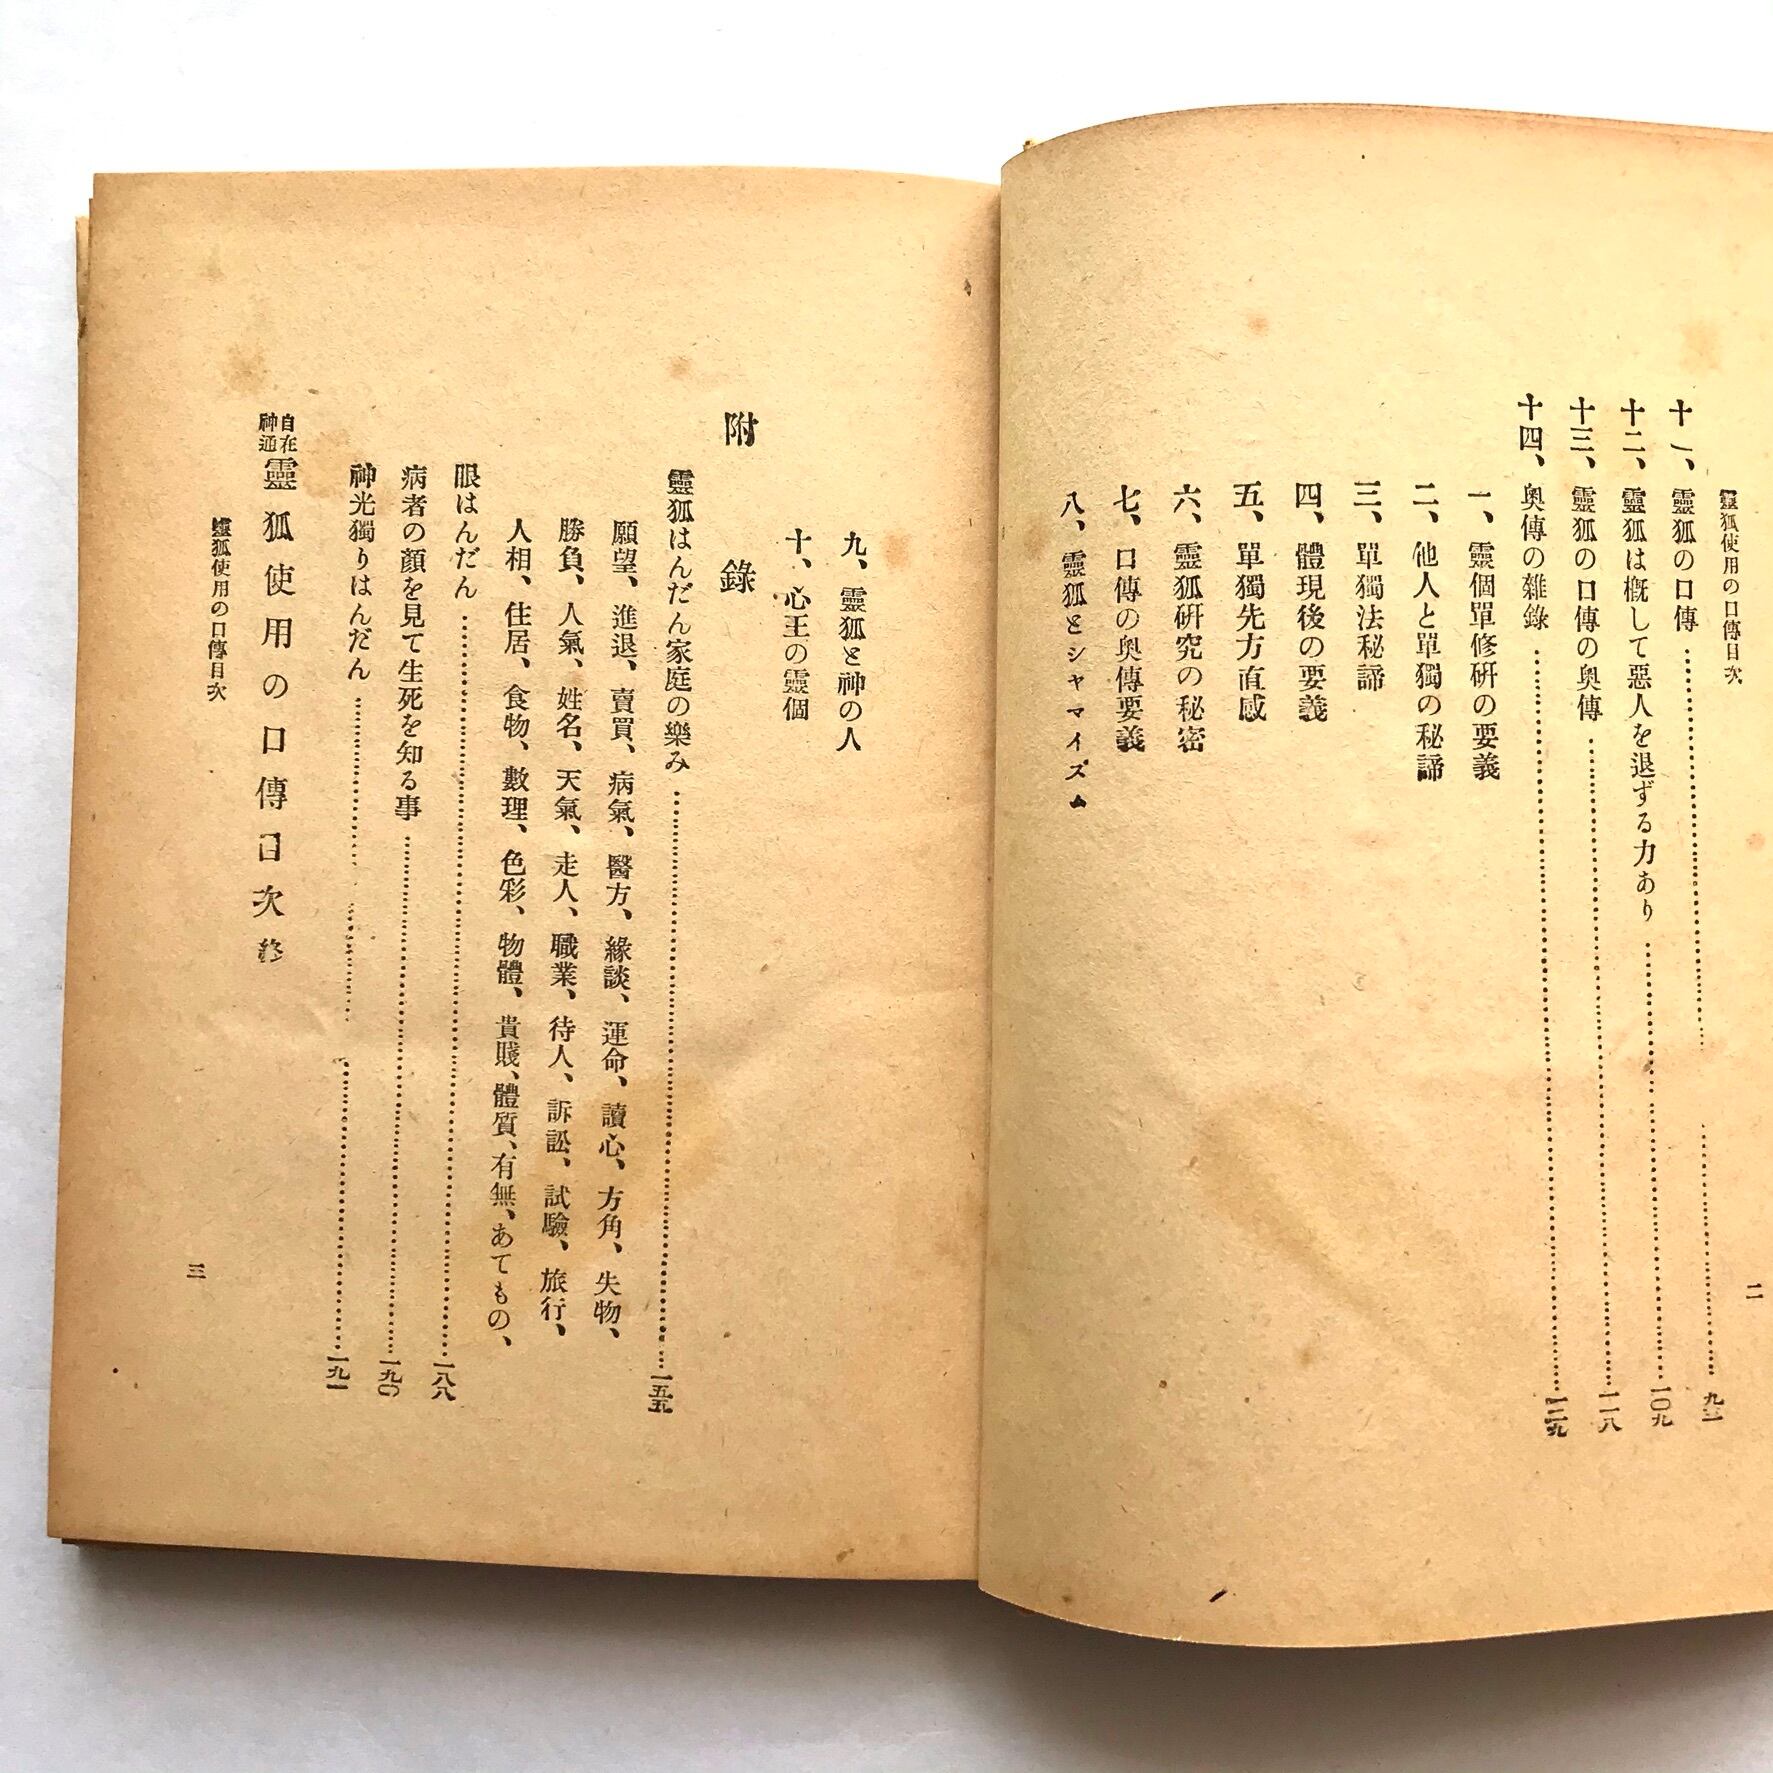 靈狐使用の口傳目次
十一、靈狐の口傳……九一
十二、靈狐は概して惡人を退ずる力あり……一〇九
十三、靈狐の口傳の奥傳……一一八
十四、奥傳の雜錄……一二九
一、靈個單修硏の要義
二、他人と單獨の秘諦
三、單獨法秘諦
四、體現後の要義
五、單獨先方直感
六、靈狐硏究の秘密
七、口傳の奥傳要義
八、靈狐とシヤマイズム
二
九、靈狐と神の人
十、心王の靈個
附錄
靈狐はんだん家庭の樂み……一五五
願望、進退、賣買、病氣、醫方、緣談、運命、讀心、方角、失物、
勝負、人氣、姓名、天氣、走人、職業、待人、訴訟、試驗、旅行、
人相、住居、食物、數理、色彩、物體、貴賤、體質、有無、あてもの、
眼はんだん……一八八
病者の顏を見て生死を知る事……一九〇
神光獨りはんだん……一九一
自在神通靈狐使用の口傳目次終
靈狐使用の口傳目次
三